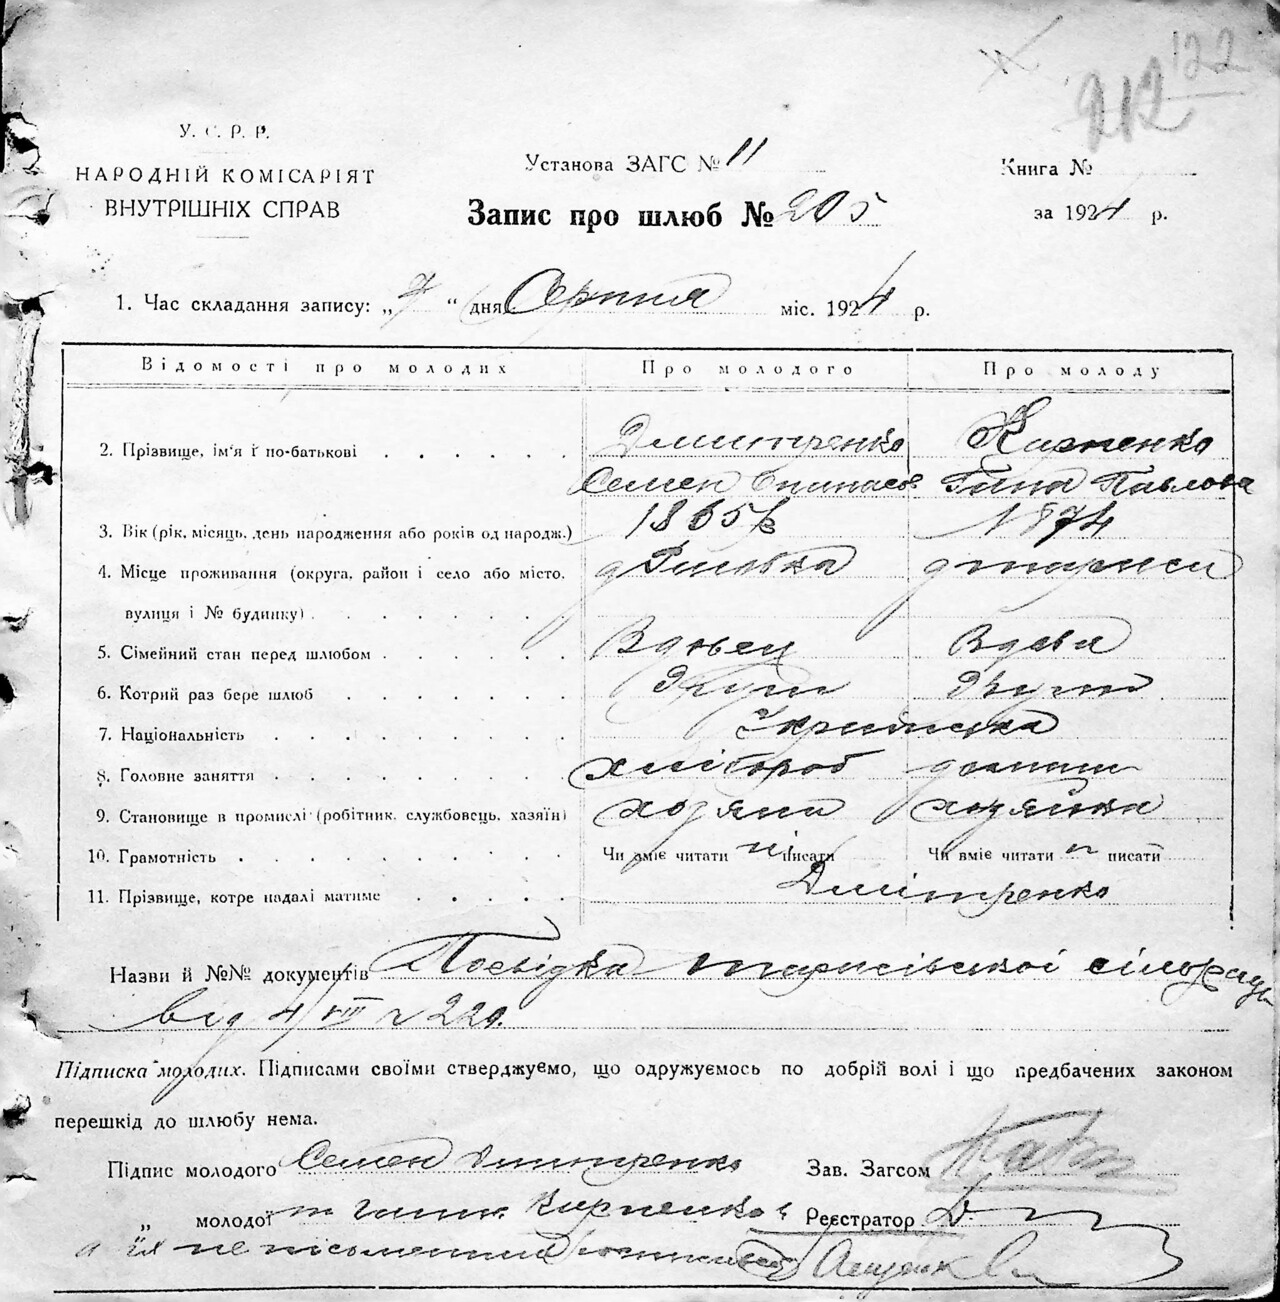 122
212
У. С. Р. Р.
НАРОДНІЙ КОМІСАРІЯТ
ВНУТРІШНІХ СПРАВ
Установа ЗАГС № 11
Книга №
Запис про шлюб № 205
за 1924 р.
1. Час складання запису: „7“ дня Серпня міс. 1924 р.
Відомості про молодих Про молодого Про молоду
2. Прізвище, ім'я і по-батькові Дмитренко
Семен Павлова
3. Вік (рік, місяць, день народження або років од народж.) 1865 1874
4. Місце проживання (округа, район і село або місто,
вулиця і № будинку)
5. Сімейний стан перед шлюбом Вдовец Вдова
6. Котрий раз бере шлюб Другий Другий
7. Національність Українська
8. Головне заняття хлібороб домаш
9. Становище в промислі (робітник, службовець, хазяїн) хозяин хозяйка
10. Грамотність Чи вміє читати ні писати Чи вміє читати писати
11. Прізвище, котре надалі матиме Дмітренко
Назви й №№ документів Посвідка сільради
від 4/VIII № 220.
Підписка молодих. Підписами своїми стверджуємо, що одружуємось по добрій волі і що предбачених законом
перешкід до шлюбу нема.
Підпис молодого Семен Дмитренко Зав. Загсом
„ молодої Реєстратор